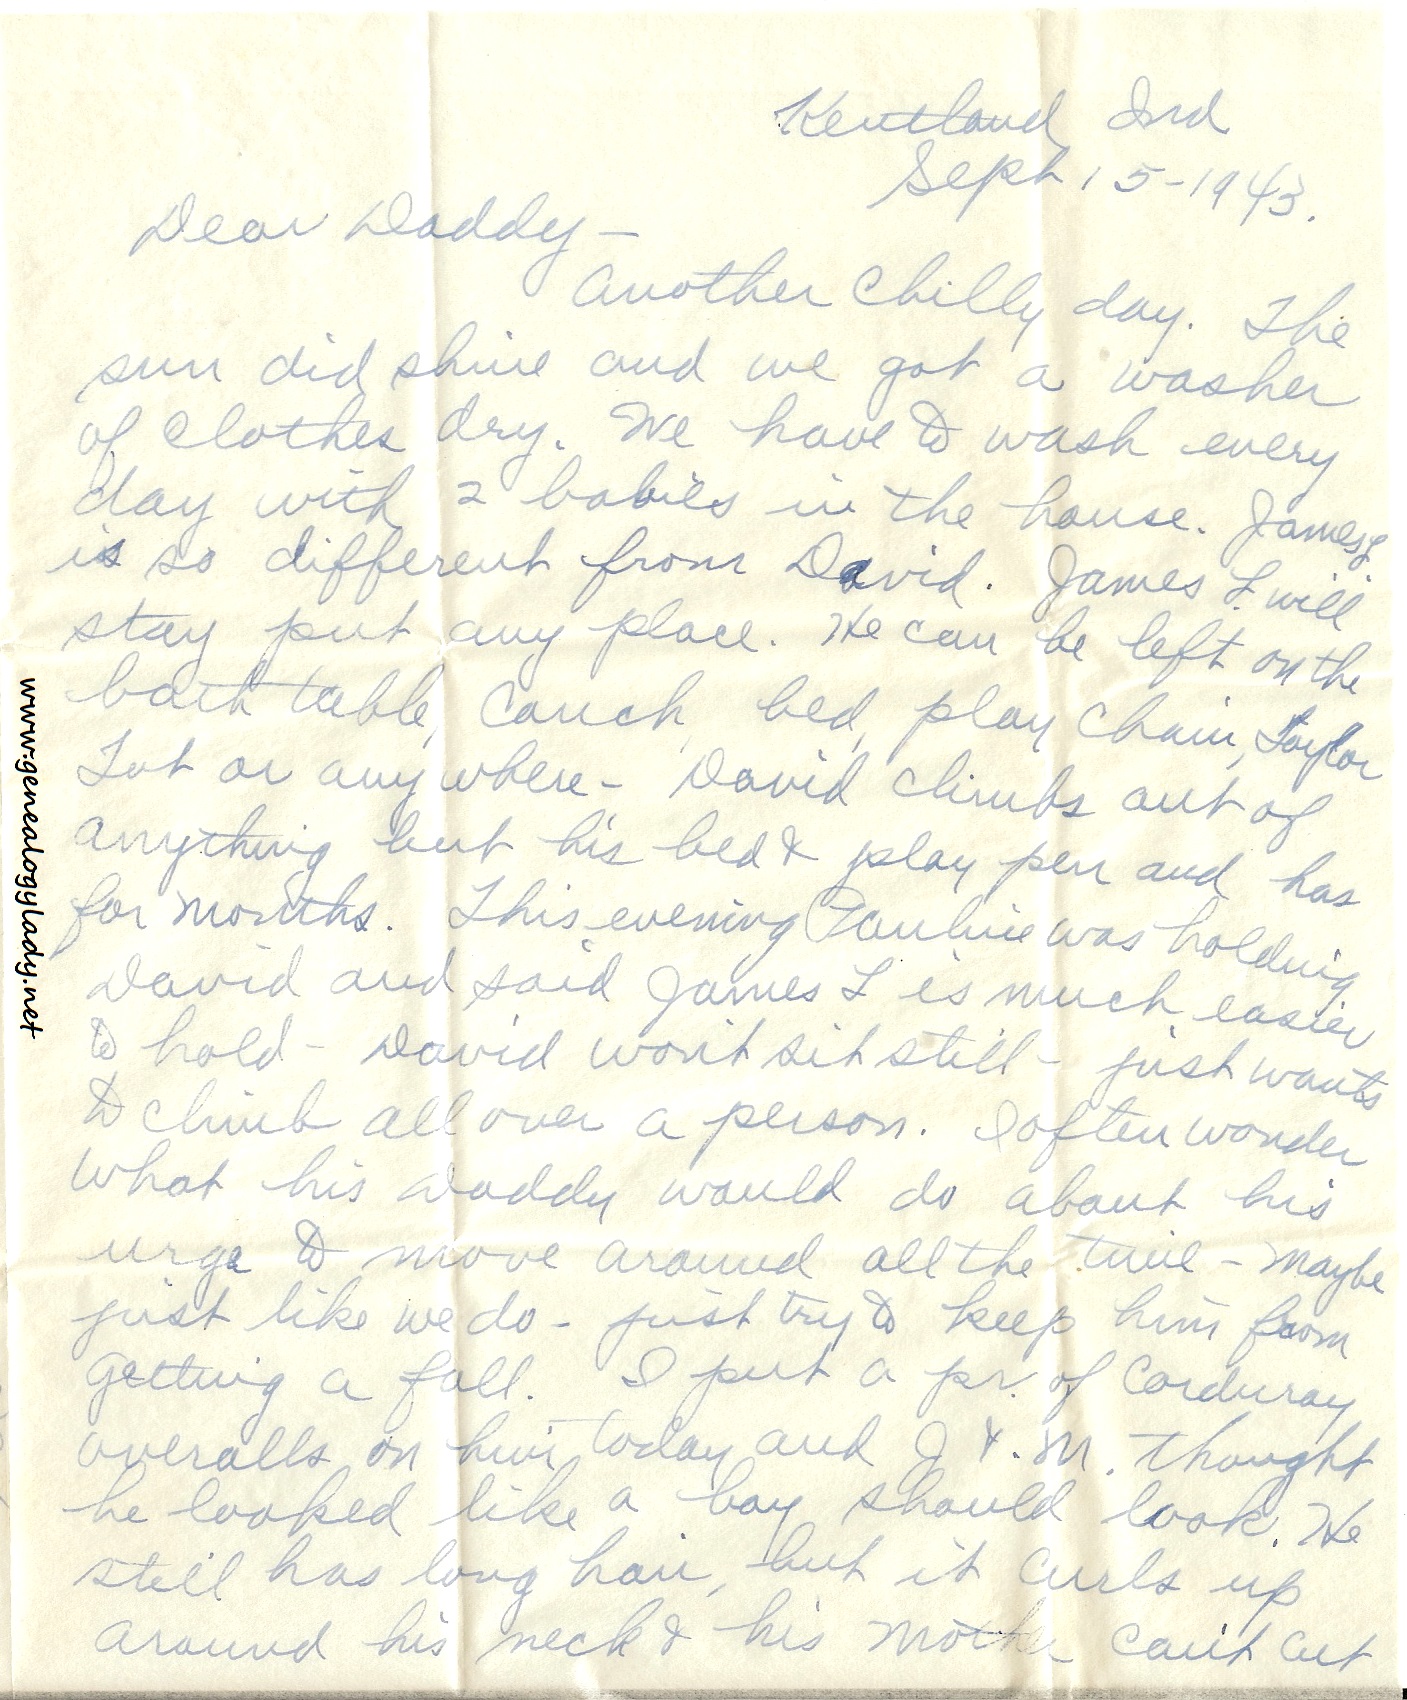 Kentland Ind
Sept 15-1943.
Dear Daddy-
Another chilly day. The
sun did shine and we got a washer
of clothes dry. We have to wash every
day with 2 babies in the house. James L
is so different from David. James L. will
stay put any place. He can be left on the
bath table, couch, bed, play chair, Taylor
Tot or any where- David climbs out of
anything but his bed & play pen and has
for months. This evening Pauline was holding
David and said James L is much easier
to hold- David won't sit still- just wants
to climb all over a person. I often wonder
what his Daddy would do about his
urge to move around all the time- maybe
just like we do- just try to keep him from
getting a fall. I put a pr. of corduray
overalls on him today and J & . M. thought
he looked like a boy should look. He
still has long hair, but it curls up
around his neck & his mother can't cut
www.genealogylady.net